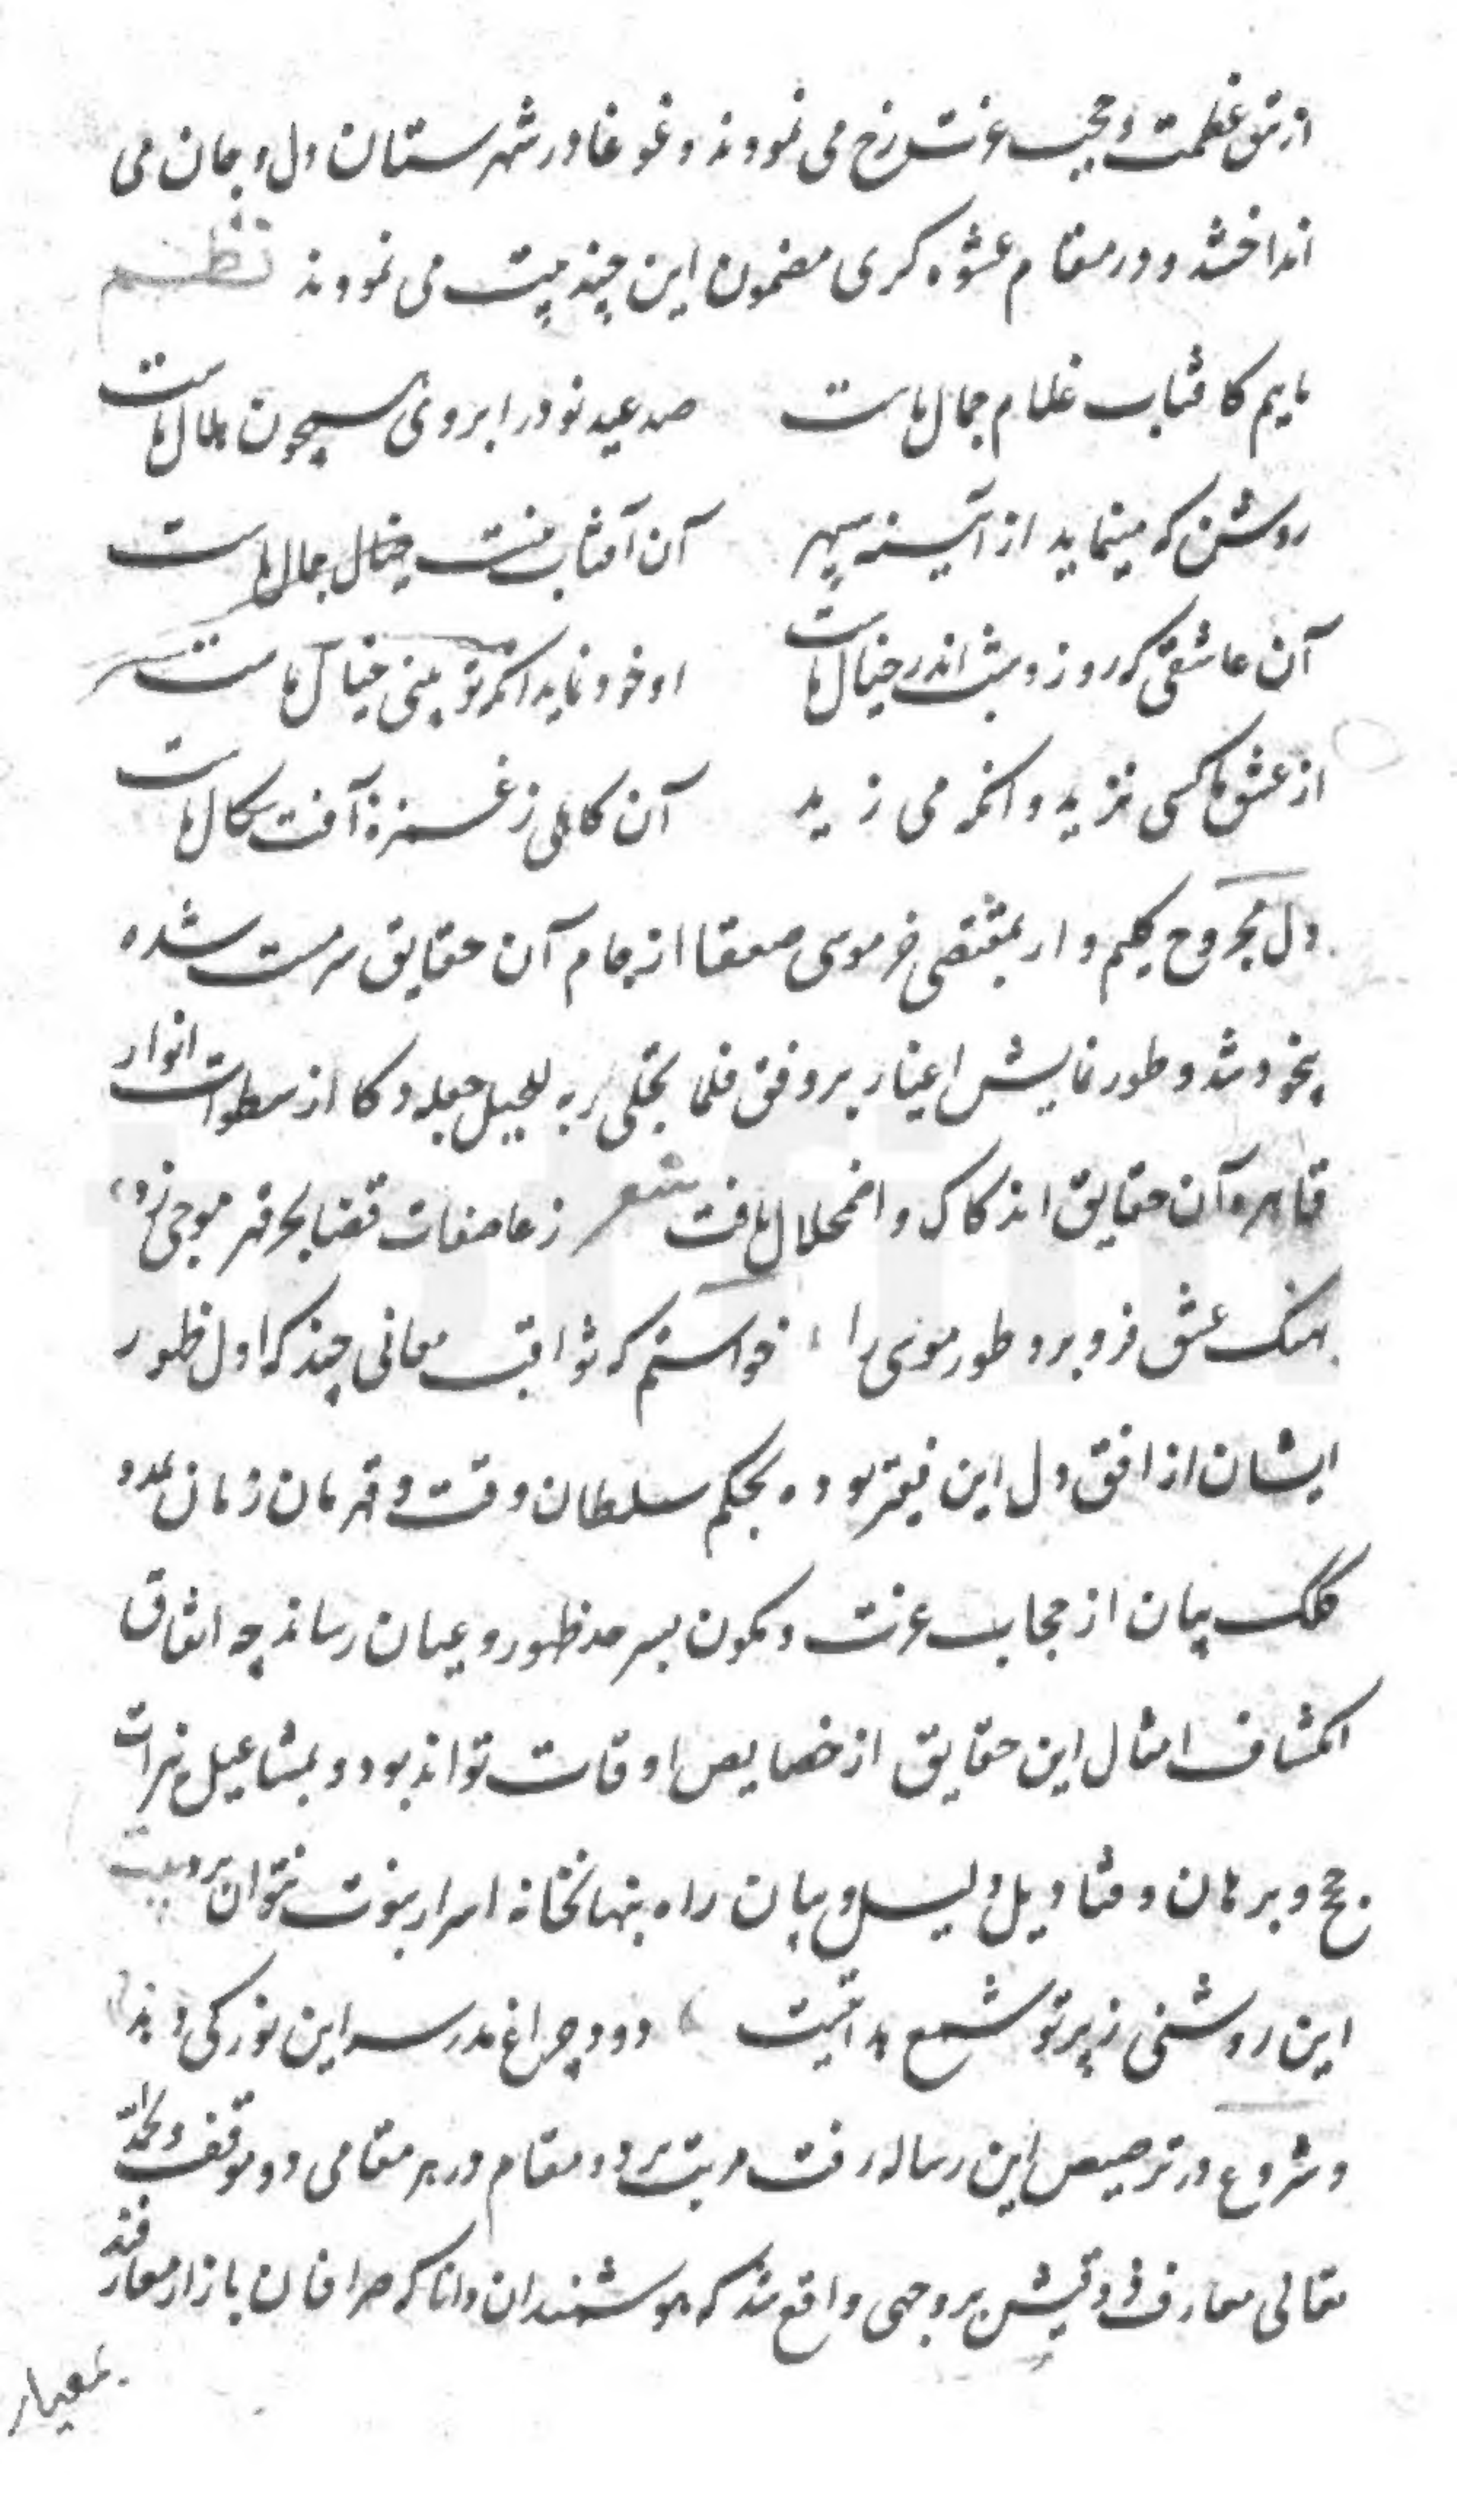 از تتق عظمت و حجب عزت رخ می نمودند و غوغا در شهرستان دل و جان می
انداختند و در مقام عشوه کری مضمون این چند بیت می نمودند نظم
ماییم کافتاب غلام جمال ماست صد عید نو در ابروی همچون هلال ماست
روشن که مینماید از آیینه سپهر آن آفتاب نیست خیال جمال ماست
آن عاشقی که روز و شب اندر خیال ماست او خود نماید انکه تو بینی خیال ماست
از عشق ما کسی نزید وانکه می زید آن کاهلی ز غمزه آفت سکال ماست
دل مجروح کلیم وار بمقتضی خر موسی صعقا از جام آن حقایق سرمست شده
بیخود شد و طور نمایش اغیار بر وفق فلما تجلی ربه للجبل جعله دکا از سطوات انوار
قاهره آن حقایق اندکاک و اضمحلال یافت شعر ز عاصفات قضا بحر قهر موجی زد
نهنک عشق فرو برد طور موسی را خواستم که ثواقب معانی چند که اول ظهور
ایشان از افق دل این فقیر بوده بحکم سلطان وقت و قهرمان زمان بمدد
کلک بیان از حجاب عزت و کمون بسرحد ظهور و عیان رساند چه اتفاق
انکشاف امثال این حقایق از خصایص اوقات تواند بود و بمشاعیل نیرات
حجج و برهان و قنادیل دلیل و بیان راه بنهانخانه اسرار نبوت نتوان برد بیت
این روشنی ز پرتو شمع هدایتست دود چراغ مدرسه این نور کی دهد
و شروع در ترصیص این رساله رفت مرتب بر دو مقام در هر مقامی دو موقف و بحمد الله
تعالی معارف ذوقیش بر وجهی واقع شد که هوشمندان دانا که صرافان بازار معارفند
بمعیار